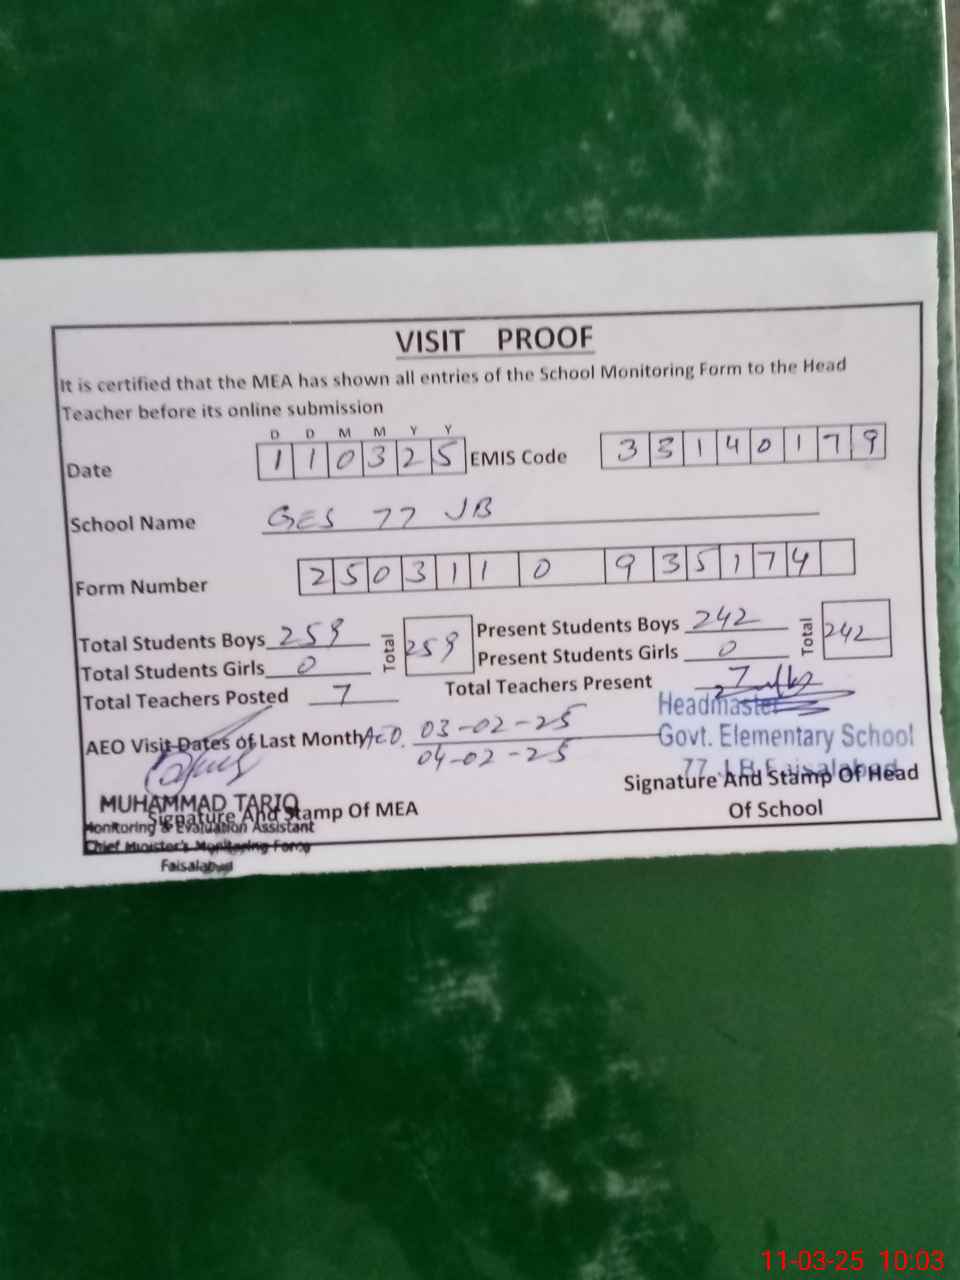 VISIT PROOF
It is certified that the MEA has shown all entries of the School Monitoring Form to the Head
Teacher before its online submission
D D M M Y Y
Date 1 1 0 3 2 5 EMIS Code 3 3 1 4 0 1 7 9
School Name GES 77 JB
Form Number 2 5 0 3 1 1 0 9 3 5 1 7 4
Total Students Boys 259 Total 259 Present Students Boys 242 Total 242
Total Students Girls 0 Present Students Girls 0
Total Teachers Posted 7 Total Teachers Present 7
Headmaster
AEO Visit Dates of Last Month AEO. 03-02-25 Govt. Elementary School
04-02-25 77 J.B Faisalabad
Signature And Stamp Of Head
Of School
MUHAMMAD TARIQ
Signature And Stamp Of MEA
Monitoring & Evaluation Assistant
Chief Minister's Monitoring Force
Faisalabad
11-03-25 10:03